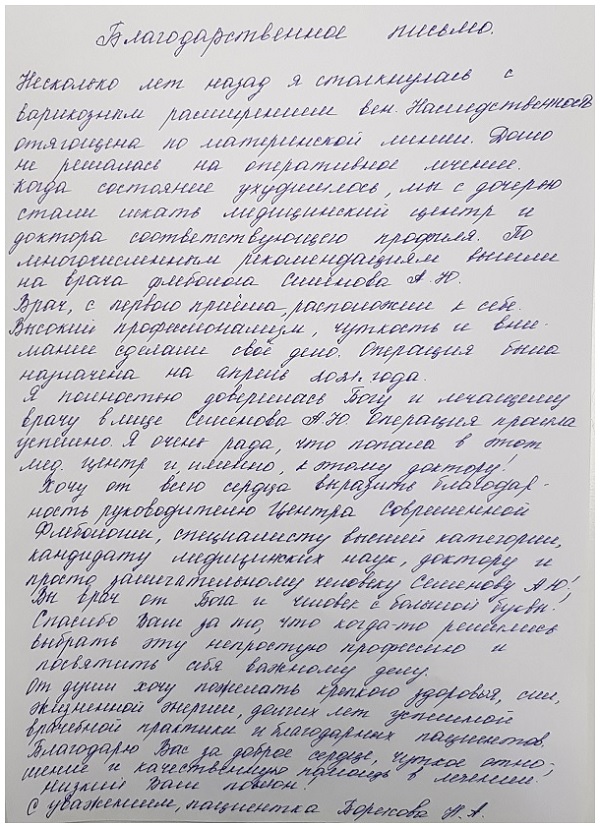 Благодарственное письмо.
Несколько лет назад я столкнулась с
варикозным расширением вен. Наследственность
отягощена по материнской линии. Долго
не решалась на оперативное лечение.
Когда состояние ухудшилось, мы с дочерью
стали искать медицинский центр и
доктора соответствующего профиля. По
многочисленным рекомендациям вышли
на врача флеболога Семёнова А.Ю.
Врач, с первого приёма, расположил к себе.
Высокий профессионализм, чуткость и вни-
мание сделали своё дело. Операция была
назначена на апрель 2021 года.
Я полностью доверилась Богу и лечащему
врачу в лице Семёнова А.Ю. Операция прошла
успешно. Я очень рада, что попала в этот
мед. центр и, именно, к этому доктору!
Хочу от всего сердца выразить благодар-
ность руководителю Центра Современной
Флебологии, специалисту высшей категории,
кандидату медицинских наук, доктору и
просто замечательному человеку Семёнову А.Ю!
Вы врач от Бога и человек с большой буквы!
Спасибо Вам за то, что когда-то решились
выбрать эту непростую профессию и
посвятить себя важному делу.
От души хочу пожелать крепкого здоровья, сил,
жизненной энергии, долгих лет успешной
врачебной практики и благодарных пациентов.
Благодарю Вас за доброе сердце, чуткое отно-
шение и качественную помощь в лечении.
Низкий Вам поклон!
С уважением, пациентка Н.А.